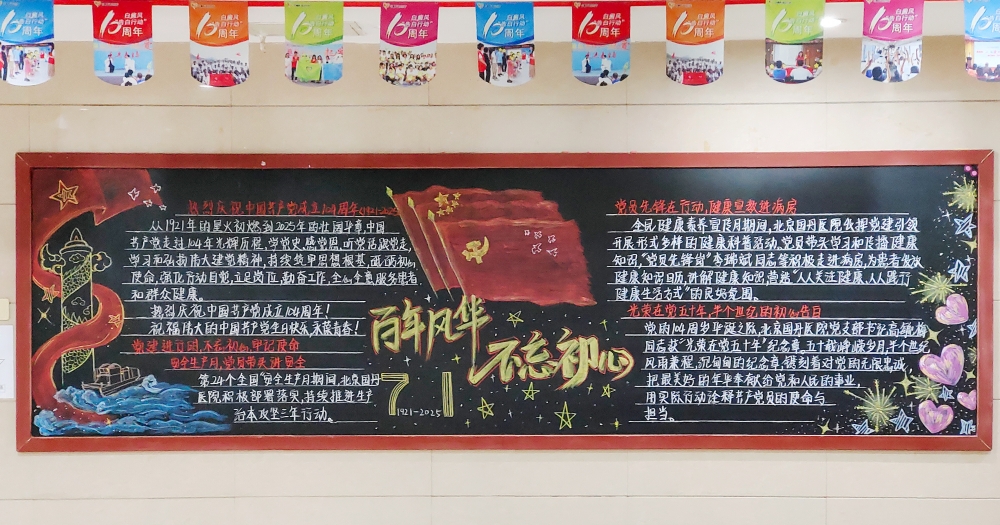 白癜风
告白行动
10周年
热烈庆祝中国共产党成立104周年(1921-2025)
从1921年的星火初燃到2025年的壮阔华章,中国
共产党走过104年光辉历程。学党史,感党恩,听党话,跟党走,
学习和弘扬伟大建党精神,持续筑牢思想根基,践行初心
使命,强化行动自觉,立足岗位,勤奋工作,全心全意服务患者
和群众健康。
热烈庆祝中国共产党成立104周年!
祝福伟大的中国共产党生日快乐,永葆青春!
党建进行时,不忘初心,牢记使命
安全生产月,党员带头讲安全
第24个全国"安全生产月"期间,北京国丹
医院积极部署落实,持续推进生产
治本攻坚三年行动。
百年风华
不忘初心
71
1921-2025
党员先锋在行动,健康宣教进病房
全民健康素养宣传月期间,北京国丹医院以党建引领
开展形式多样的健康科普活动,党员带头学习和传播健康
知识,"党员先锋岗"李瑞斌同志等积极走进病房,为患者发放
健康知识日历,讲解健康知识,营造"人人关注健康,人人践行
健康生活方式"的良好氛围。
光荣在党五十年,半个世纪的初心告白
党的104周岁华诞之际,北京国丹医院党支部书记高敏梅
同志获"光荣在党五十年"纪念章,五十载峥嵘岁月,半个世纪
风雨兼程,沉甸甸的纪念章,镌刻着对党的无限忠诚
把最美好的年华奉献给党和人民的事业,
用实际行动诠释共产党员的使命与
担当。